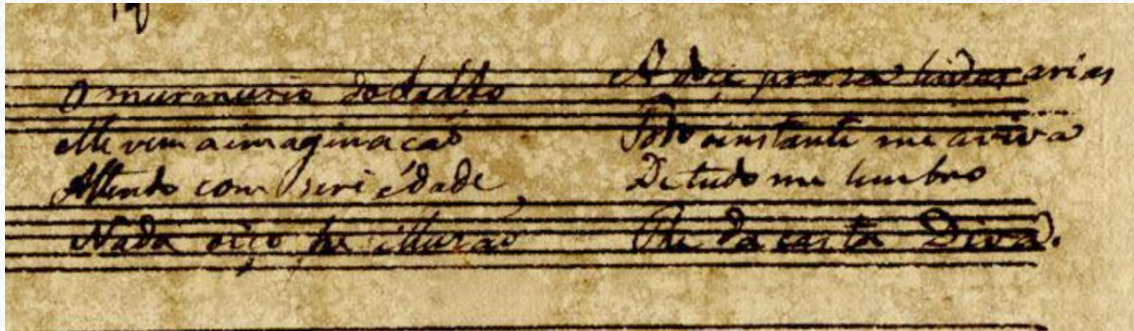 O murmurio do
Me vem a imaginacaõ
Attendo com seriédade
Nada oiço he illuzaõ
A doce proza lindas arias
Todo instante me aviva
De tudo me lembro
Athe da casta Diva.